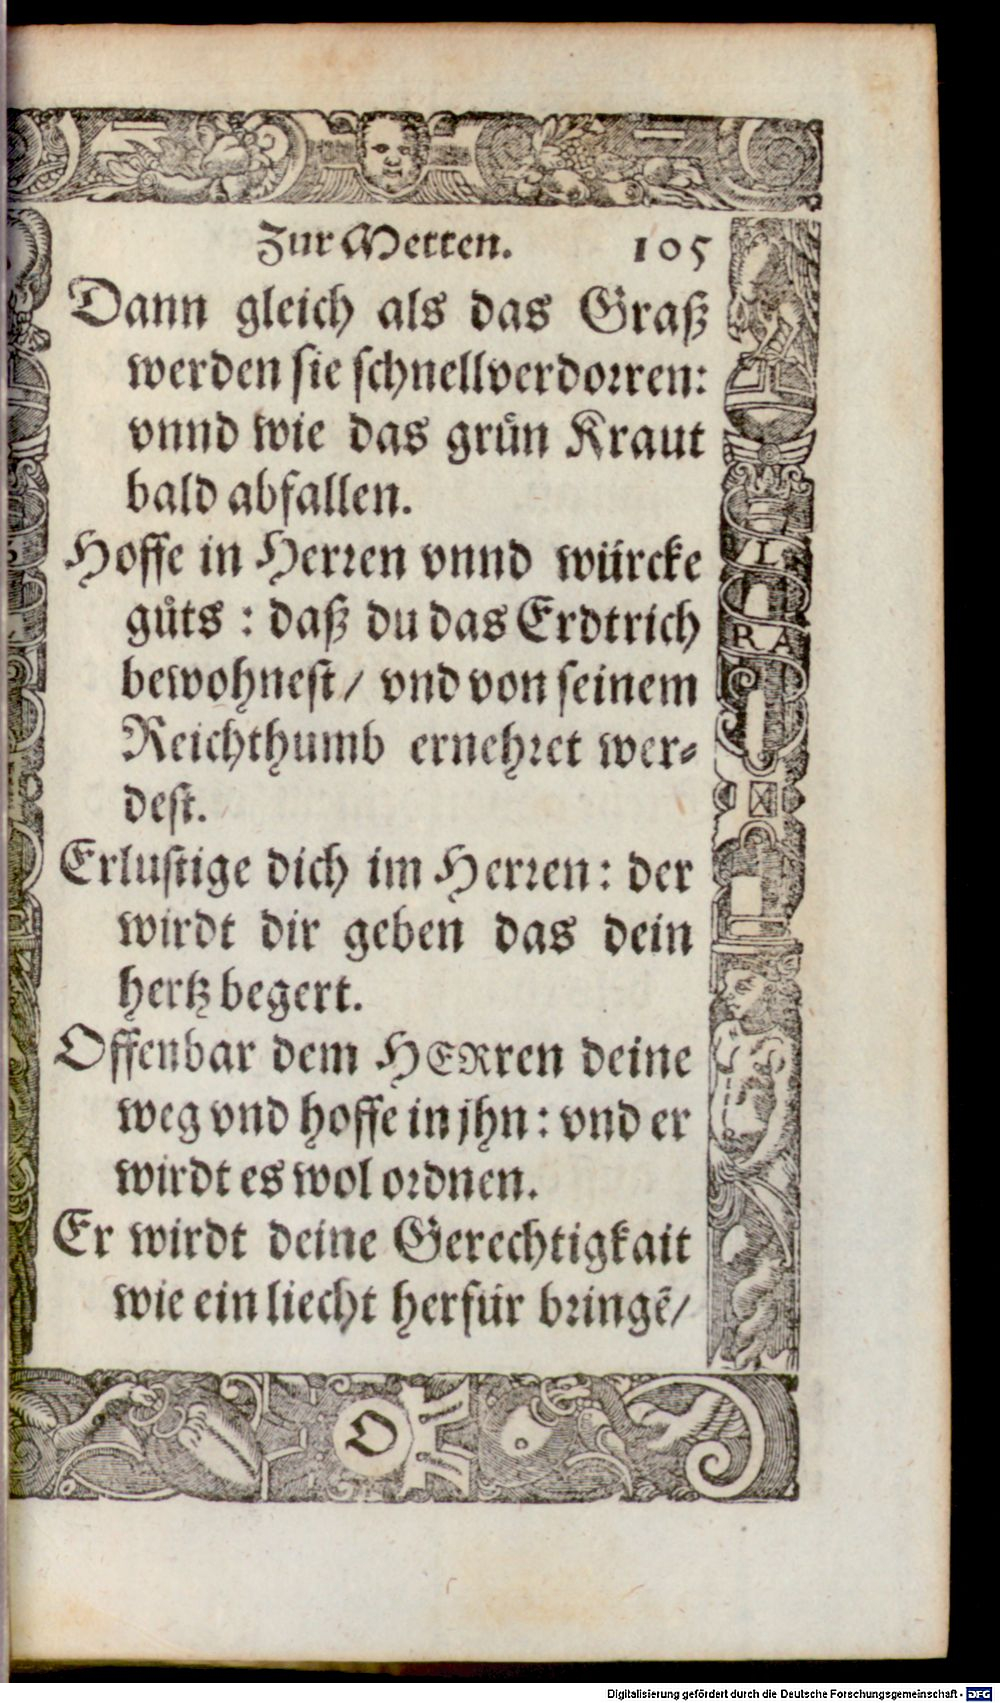 Zur Metten. 105
Dann gleich als das Graß
werden sie schnell verdorren:
vnnd wie das grün Kraut
bald abfallen.
Hoffe in Herren vnnd würcke
gůts : daß du das Erdtrich
bewohnest / vnd von seinem
Reichthumb ernehret wer⸗
dest.
Erlustige dich im Herren : der
wirdt dir geben das dein
hertz begert.
Offenbar dem HERren deine
weg vnd hoffe in jhn : vnd er
wirdt es wol ordnen.
Er wirdt deine Gerechtigkait
wie ein liecht herfür bringẽ /
L
R A
O
Digitalisierung gefördert durch die Deutsche Forschungsgemeinschaft - DFG